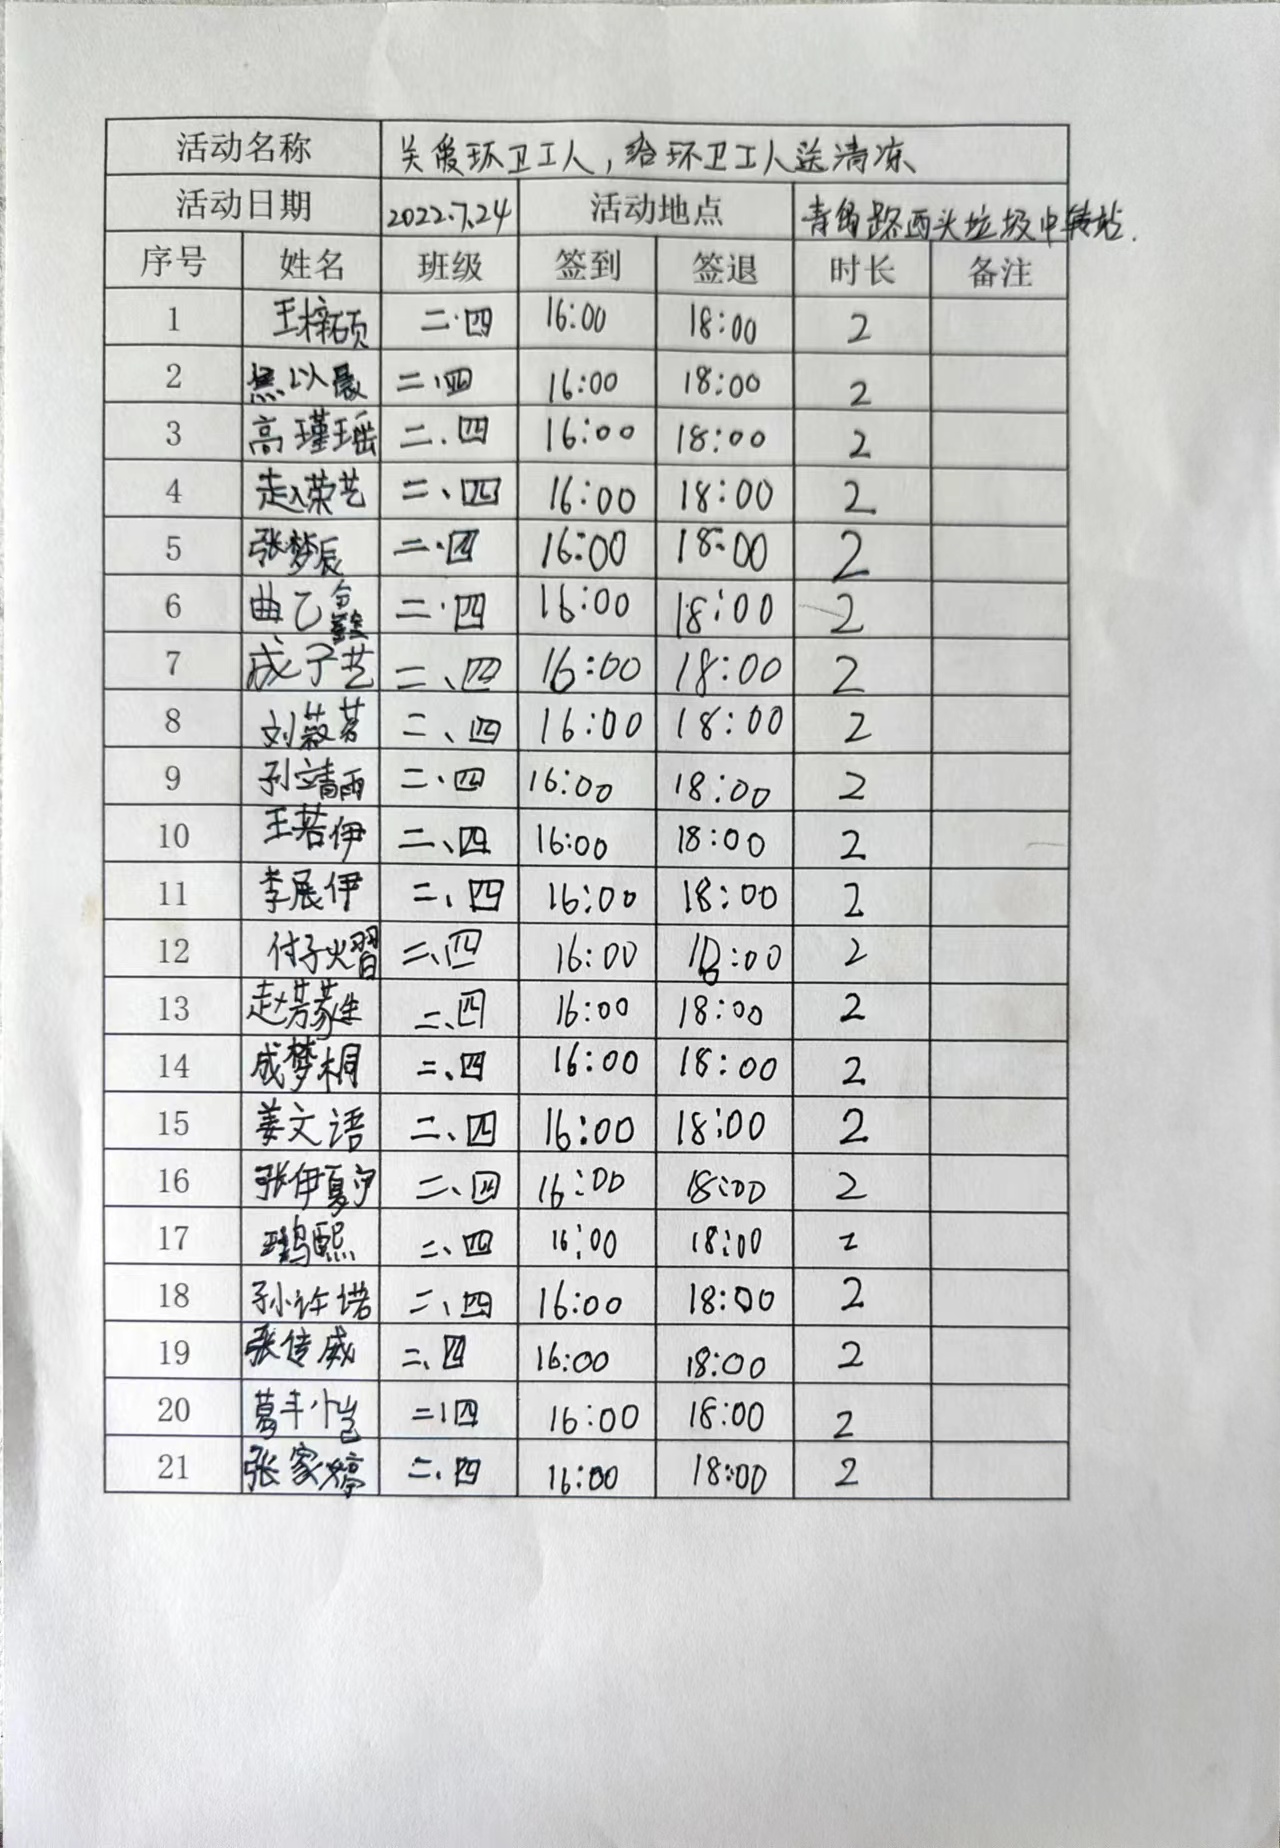 活动名称 关爱环卫工人，给环卫工人送清凉
活动日期 2022.7.24 活动地点 青岛路西头垃圾中转站.
序号 姓名 班级 签到 签退 时长 备注
1 王梓硕 二·四 16:00 18:00 2
2 以晨 二、四 16:00 18:00 2
3 高瑾瑶 二、四 16:00 18:00 2
4 赵荣艺 二、四 16:00 18:00 2
5 张梦辰 二·四 16:00 18:00 2
6 曲乙 二·四 16:00 18:00 2
7 成子艺 二、四 16:00 18:00 2
8 刘薇茗 二、四 16:00 18:00 2
9 孙靖雨 二·四 16:00 18:00 2
10 王若伊 二、四 16:00 18:00 2
11 李展伊 二、四 16:00 18:00 2
12 付子熠 二、四 16:00 18:00 2
13 赵芳 二、四 16:00 18:00 2
14 成梦桐 二、四 16:00 18:00 2
15 姜文语 二、四 16:00 18:00 2
16 张伊夏宁 二、四 16:00 18:00 2
17 熙 二、四 16:00 18:00 2
18 孙许诺 二、四 16:00 18:00 2
19 张传威 二、四 16:00 18:00 2
20 葛丰恺 二、四 16:00 18:00 2
21 张家婷 二、四 16:00 18:00 2